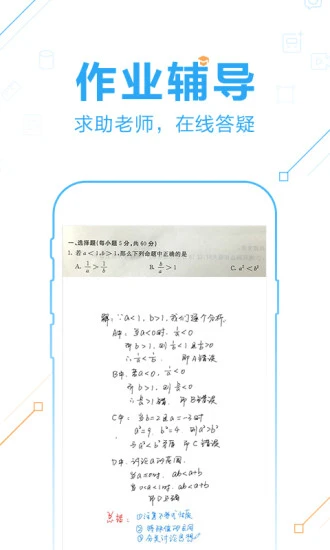 作业辅导
求助老师，在线答疑
一、选择题(每小题5分,共60分)
1. 若a<1,b>1,那么下列命题中正确的是
A. 1/a>1/b B. b/a>1 C. a²<b²
解: ∵a<1, b>1, 我们逐个分析.
A中: 当a<0时, 1/a<0
而b>1, 则1/b<1且1/b>0
∴1/a<1/b. 即A错误
B中: 若a<0, 1/a<0
而b>1, 则b/a<0
∴b/a>1错. 即B错误
C中: 当b=2且a=-3时
a²=9, b²=4 则a²>b²
与a²<b²矛盾 即C错误
D中: 讨论a的范围.
当a≤0时, ab<a+b
当0<a<1时, ab<a+b
即D正确
总结:
②特殊值的应用
③分类讨论思想